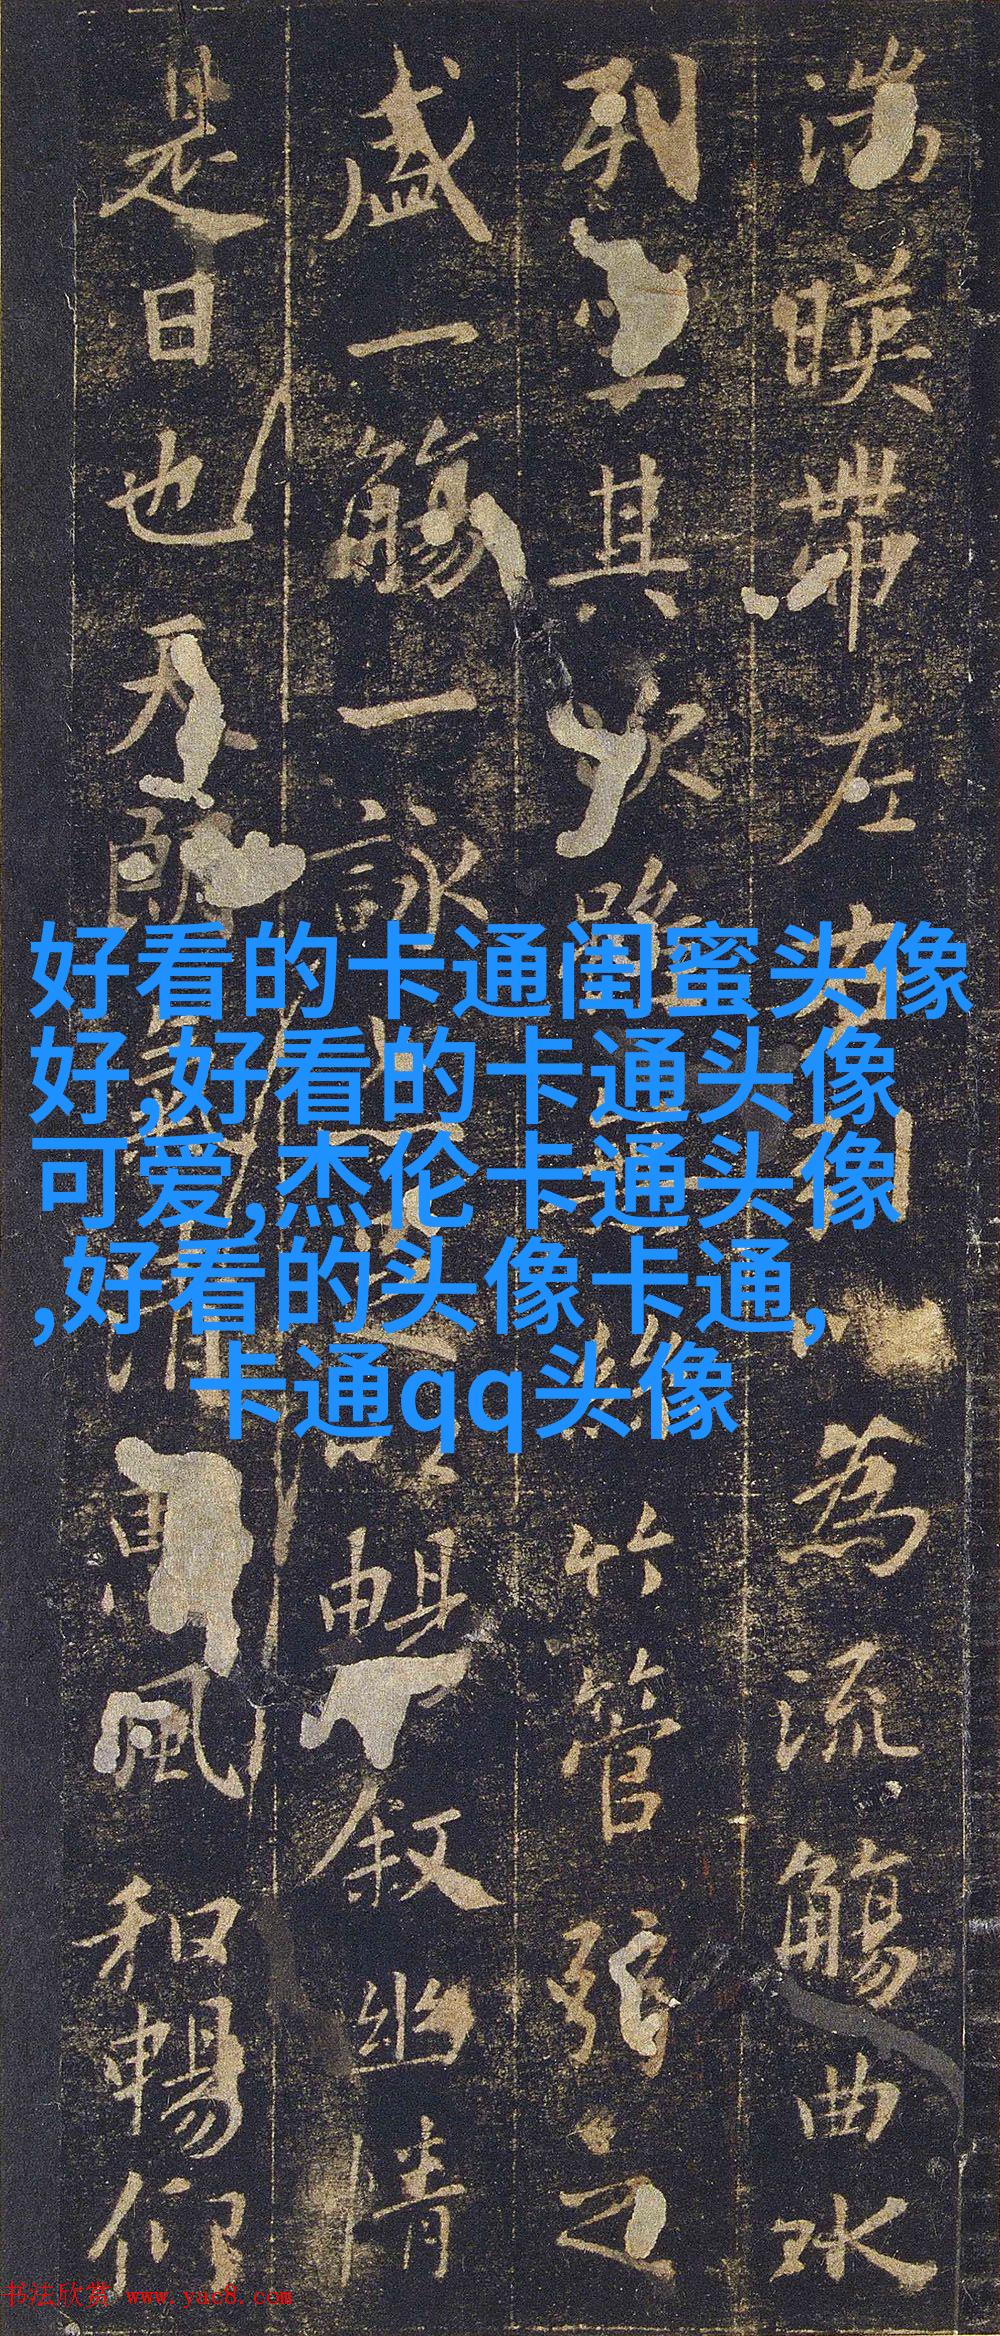 湍暎帶左右引以為流觴曲水
列坐其次雖無絲竹管弦之
盛一觴一詠亦足以暢叙幽情
是日也天朗氣清惠風和暢仰
好看的卡通闺蜜头像
好,好看的卡通头像
可爱,杰伦卡通头像
,好看的头像卡通,
卡通qq头像
书法欣赏 www.yac8.com